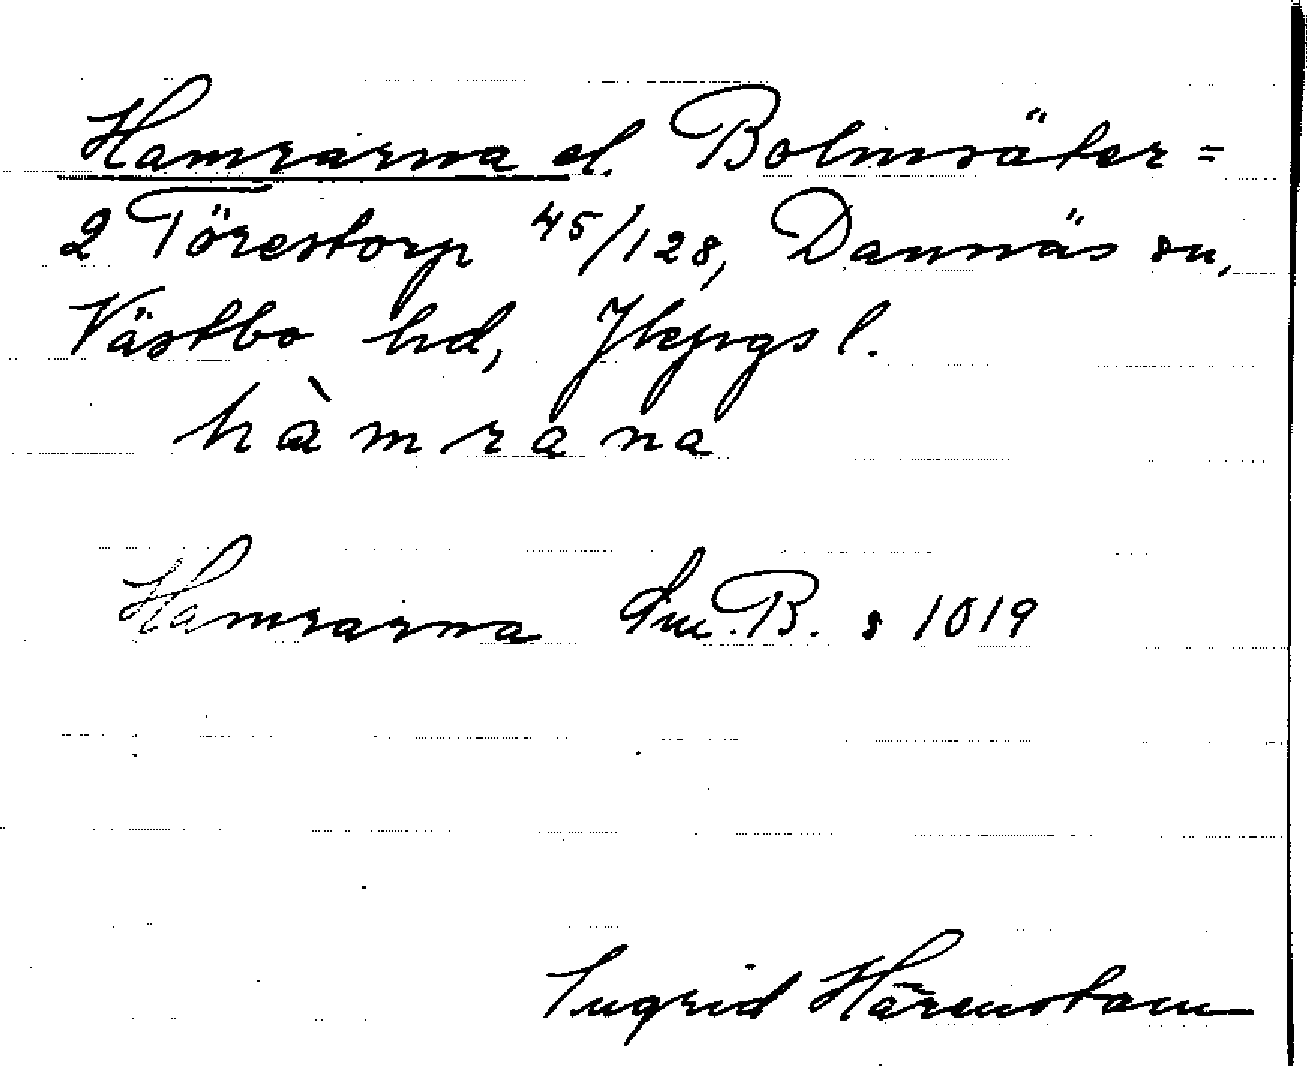 Hamrarna el. Bolmsäter =
2 Törestorp 45/128, Dannäs sn,
Västbo hd, Jkpgs l.
hàmrana
Hamrarna Sm.B. s 1019
Ingrid Härenstam